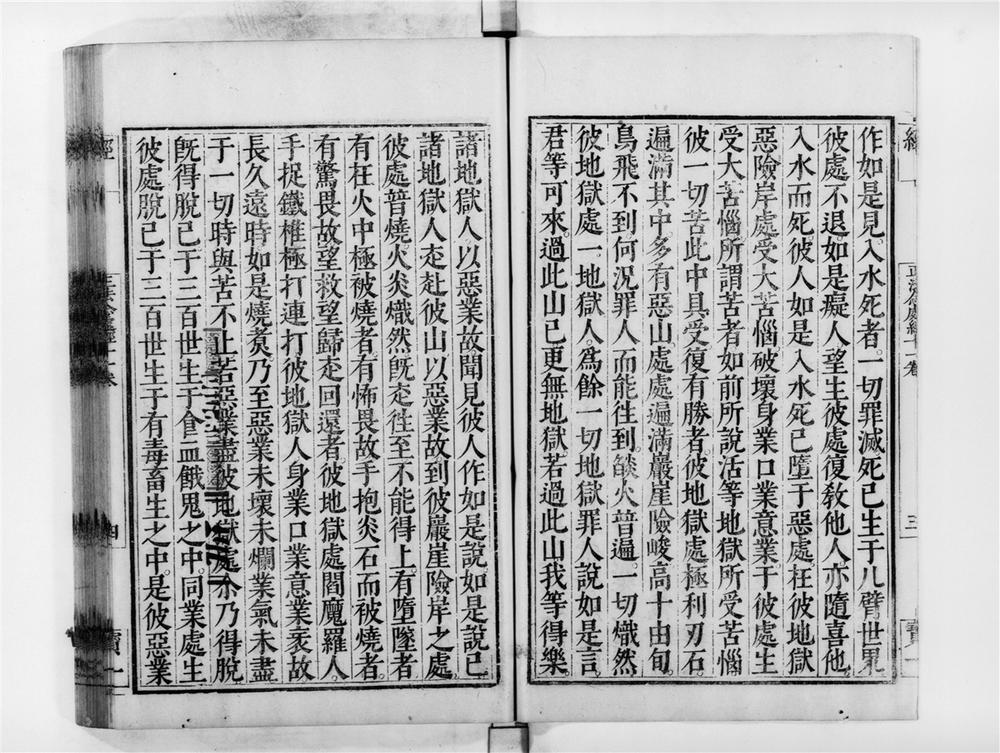 作如是見入水死者。一切罪滅死已生于八臂世界
彼處不退如是癡人望生彼處復教他人。亦隨喜他
入水而死彼人如是入水死已墮于惡處。在彼地獄
惡險岸處受大苦惱破壞身業口業意業于彼處生
受大苦惱所謂苦者如前所說活等地獄所受苦惱
彼一切苦此中具受復有勝者。彼地獄處極利刃石。
遍滿其中。多有惡山。處處遍滿巖崖險峻高十由旬。
鳥飛不到何況罪人而能往到。燄火普遍。一切熾然
彼地獄處。一地獄人。爲餘一切地獄罪人說如是言。
君等可來。過此山已更無地獄若過此山我等得樂。
諸地獄人以惡業故聞見彼人作如是說。如是說已
諸地獄人走赴彼山以惡業故到彼巖崖險岸之處
彼處普燒。火炎熾然旣走往至不能得上。有墮墜者
有在火中極被燒者。有怖畏故手抱炎石而被燒者。
有驚畏故望救望歸走回還者。彼地獄處閻魔羅人。
手捉鐵椎極打連打彼地獄人身業口業意業袤故
長久遠時如是燒煑乃至惡業未壞未爛業氣未盡
于一切時與苦不止若惡業盡彼地獄處尒乃得脫
旣得脫已于三百世生于食血餓鬼之中。同業處生
彼處脫已于三百世生于有毒畜生之中。是彼惡業
經
正法念處經十一卷
三
四